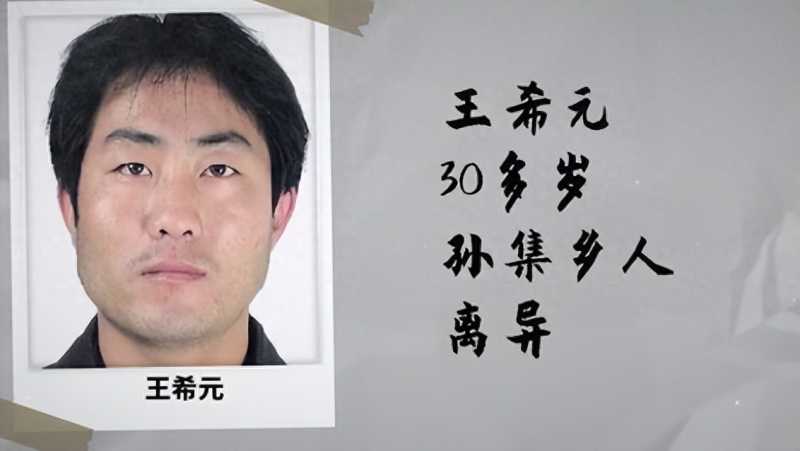 王希元
王希元
30多岁
孙集乡人
离异